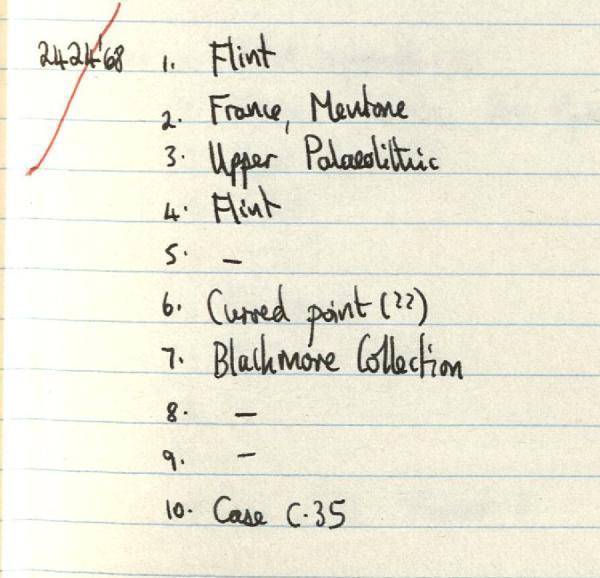 2424'68 1. Flint
2. France, Mentone
3. Upper Palaeolithic
4. Flint
5. –
6. Curved point (??)
7. Blackmore Collection
8. –
9. –
10. Case C.35